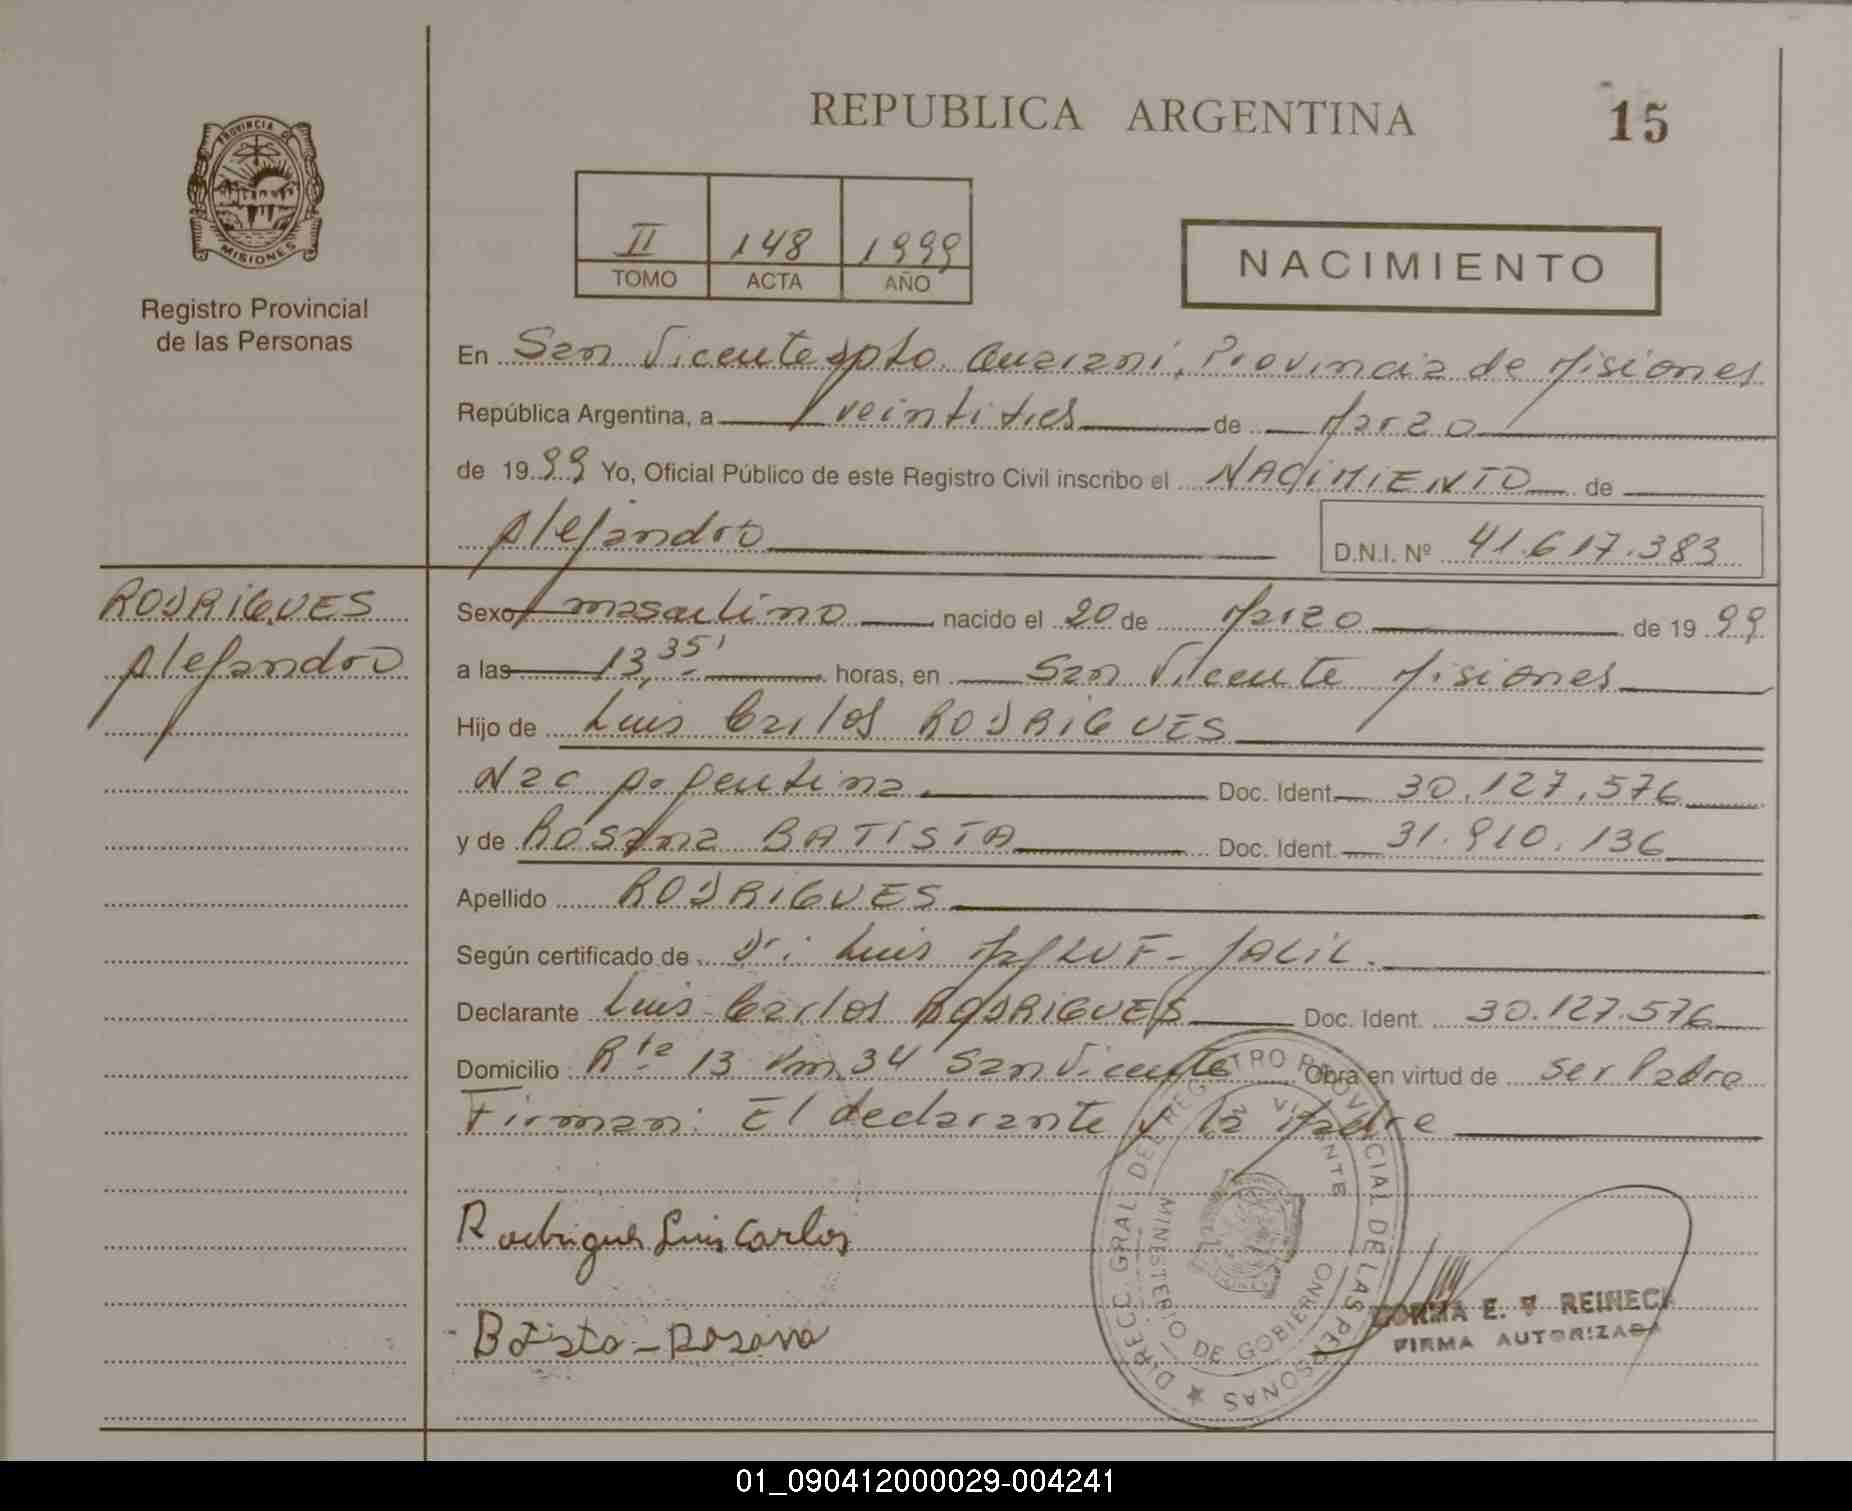 REPUBLICA ARGENTINA
15
PROVINCIA DE
MISIONES
Registro Provincial
de las Personas
II 148 1999
TOMO ACTA AÑO
NACIMIENTO
En San Vicente dpto. Guarani, Provincia de Misiones
República Argentina, a veintitres de Marzo
de 1999 Yo, Oficial Público de este Registro Civil inscribo el NACIMIENTO de
Alejandro D.N.I. Nº 41.617.383
RODRIGUES
Alejandro
Sexo masculino nacido el 20 de Marzo de 1999
a las 13,35' horas, en San Vicente Misiones
Hijo de Luis Carlos RODRIGUES
Nac Argentina. Doc. Ident. 30.127.576
y de Rosana BATISTA Doc. Ident. 31.910.136
Apellido RODRIGUES
Según certificado de Dr: Luis JALIL.
Declarante Luis Carlos RODRIGUES Doc. Ident. 30.127.576
Domicilio Rta 13 Km 34 San Vicente Obra en virtud de ser Padre
Firman: El declarante y la Madre
Rodrigues Luis Carlos
Batista - Rosana
DIRECC. GRAL. DEL REGISTRO PROVINCIAL DE LAS PERSONAS
MINISTERIO DE GOBIERNO
VICENTE
E. REINECK
FIRMA AUTORIZADA
01_090412000029-004241